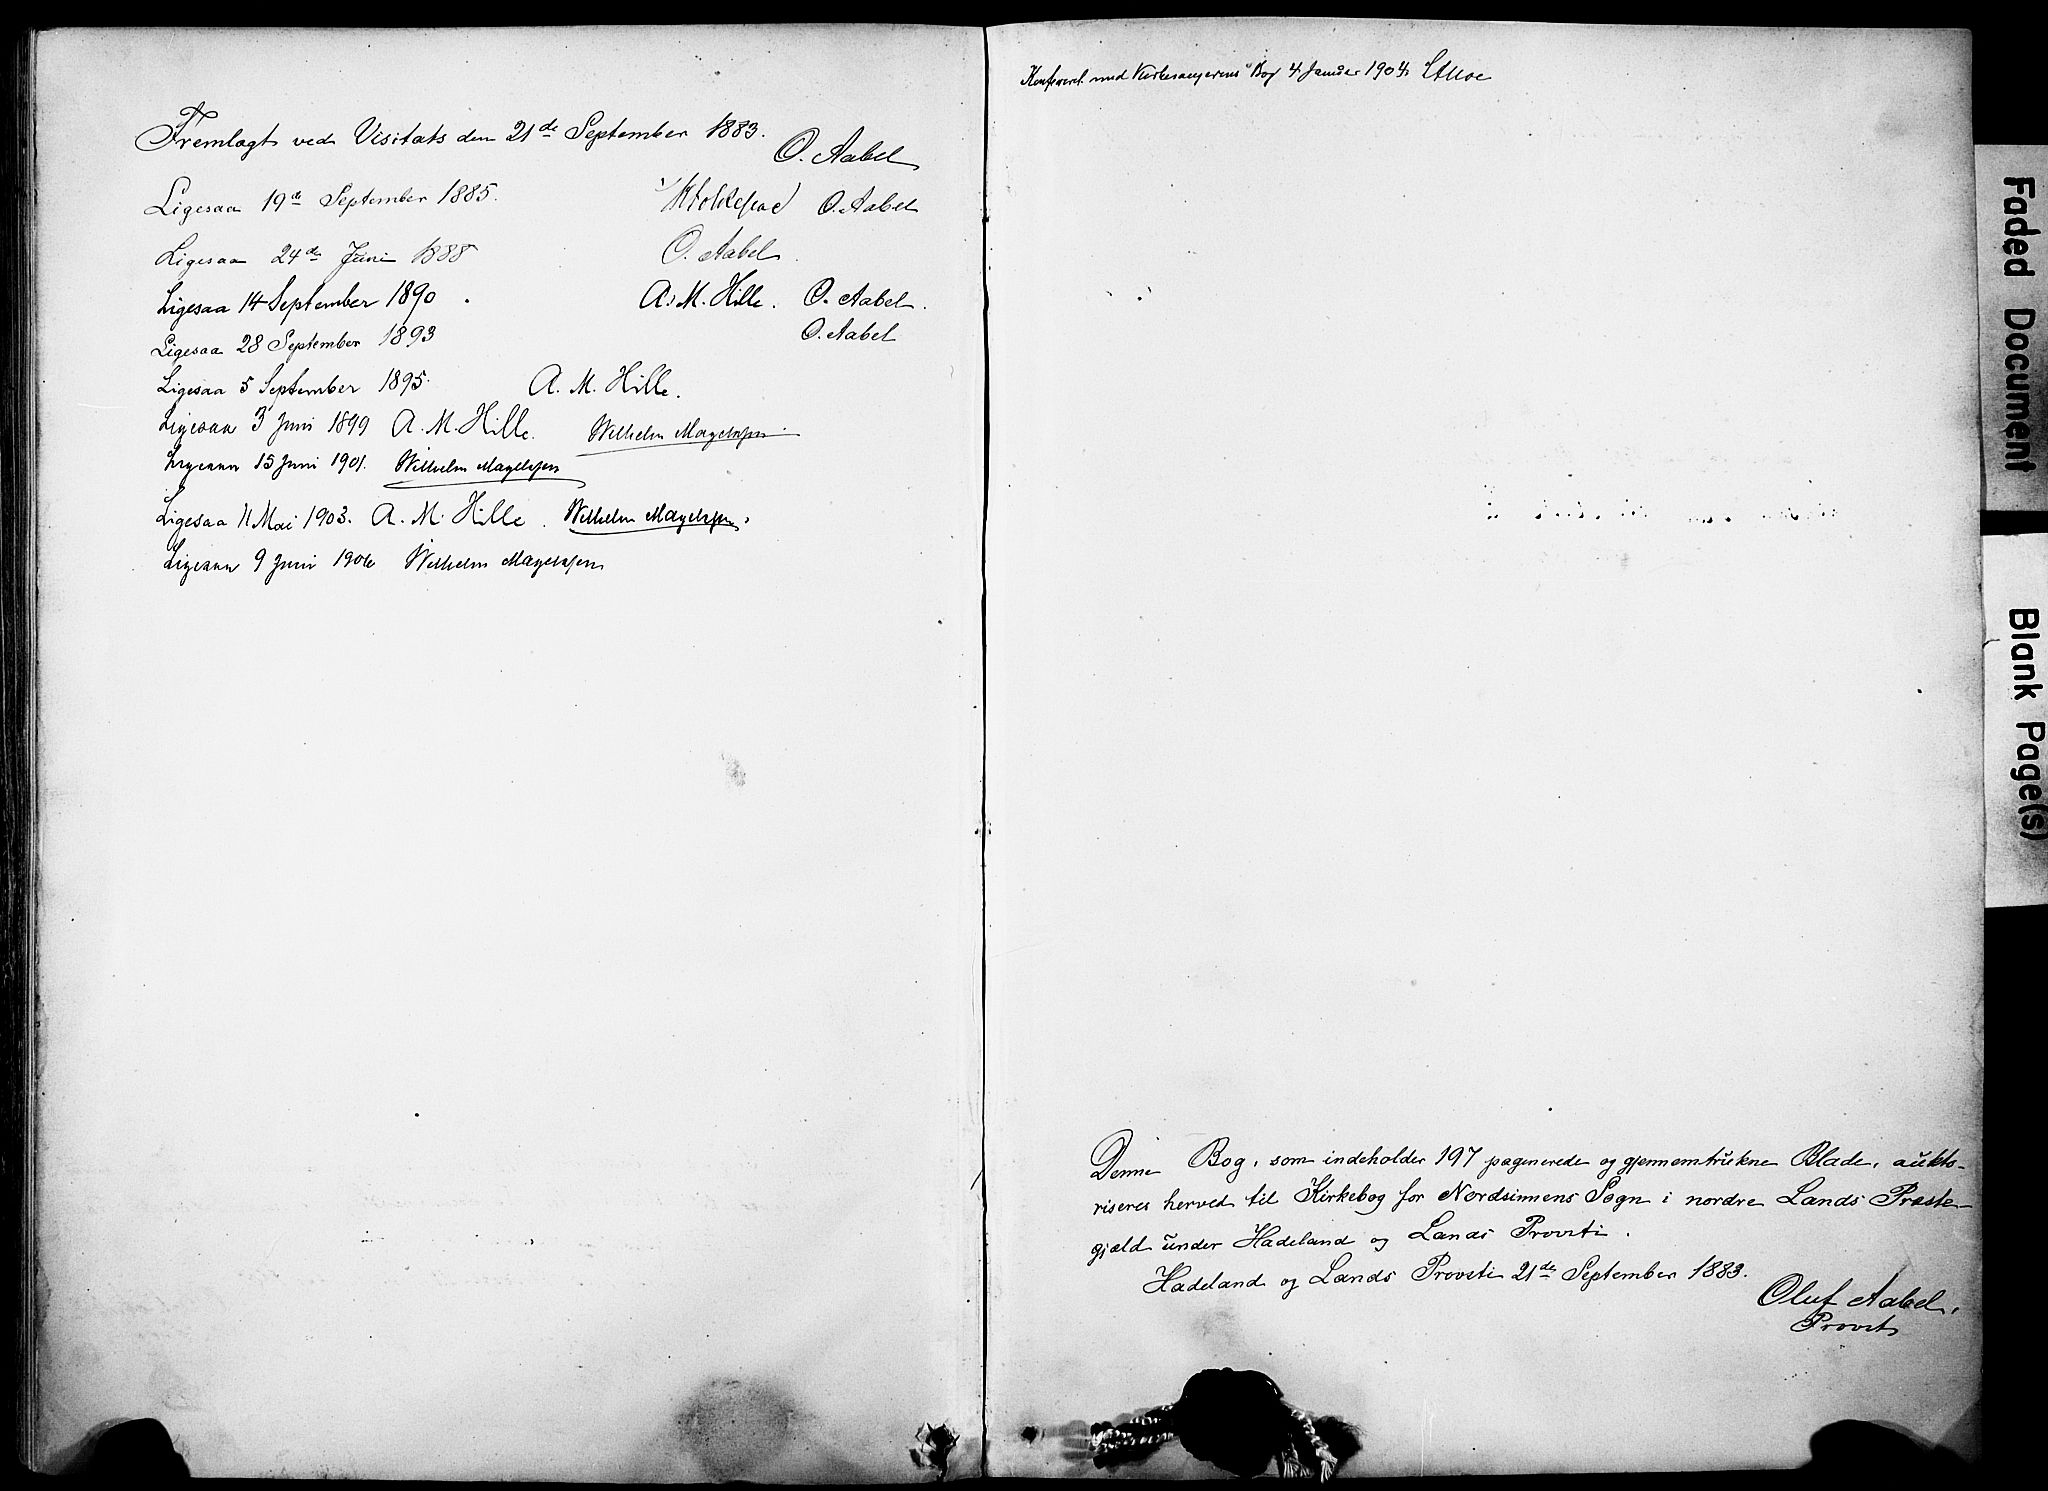 Fremlagt ved Visitats den 21de September 1883. O. Aabel
Ligesaa 19de September 1885. O. Aabel
Ligesaa 24de Juni 1888 O. Aabel
Ligesaa 14 September 1890. A. M. Hille. O. Aabel.
Ligesaa 28 September 1893 O. Aabel
Ligesaa 5 September 1895. A. M. Hille.
Ligesaa 3 Juni 1899 A. M. Hille. Wilhelm Magelssen
Ligesaa 15 Juni 1901. Wilhelm Magelssen
Ligesaa 11 Mai 1903. A. M. Hille. Wilhelm Magelssen.
Ligesaa 9 Juni 1906 Wilhelm Magelssen
Konfereret med Kirkesangerens Bog 4 Januar 1904.
Denne Bog, som indeholder 197 paginerede og gjennemtrukne Blade, aukto-
riseres herved til Kirkebog for Nordsinnens Sogn i nordre Lands Præste-
gjæld under Hadeland og Lands Provsti.
Hadeland og Lands Provsti 21de September 1883.
Oluf Aabel,
Provst
Faded Document
Blank Page(s)